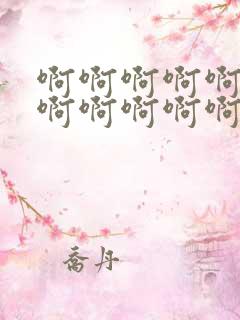 啊啊啊啊啊
啊啊啊啊啊
乔丹